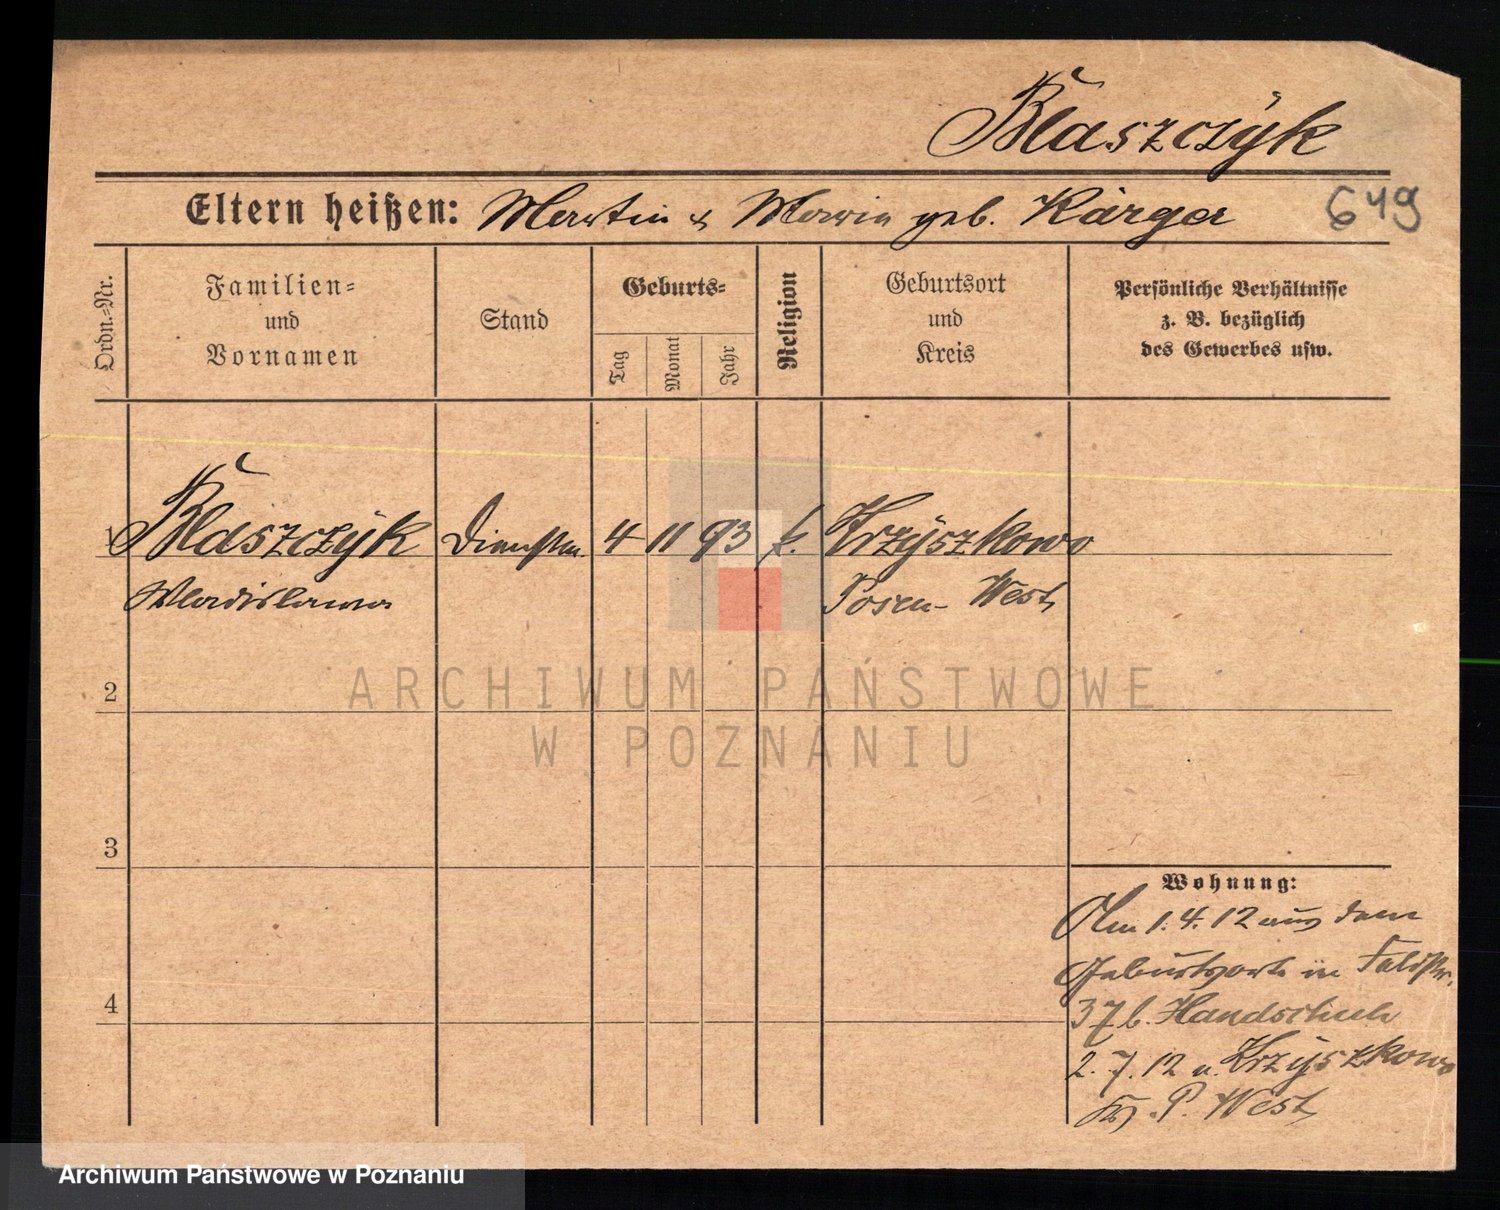 Blaszczÿk
Eltern heißen: Martin & Maria geb. Karger
649
Ordn.-Nr.
Familien-
und
Vornamen
Stand
Geburts-
Tag
Monat
Jahr
Religion
Geburtsort
und
Kreis
Persönliche Verhältnisse
z. B. bezüglich
des Gewerbes usw.
1 Blaszczÿk Dienstm. 4 11 93 k. Krzÿszkowo
Wladislawa Posen-West
2
3
4
Wohnung:
Am 1.4.12 aus dem
Geburtsorte in Feldstr.
37 b. Handschuh
2.7.12 n. Krzÿszkowo
Kr. P. West
ARCHIWUM PAŃSTWOWE
W POZNANIU
Archiwum Państwowe w Poznaniu